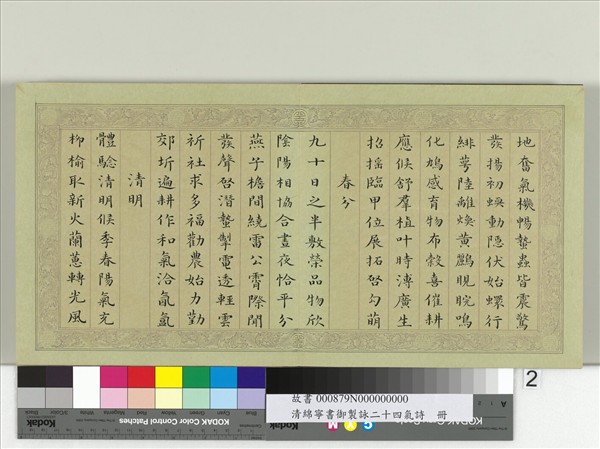 地奮氣機暢蟄蟲皆震驚
發揚初蝡動隱伏始蠉行
緋萼陸離煥黃鸝睍睆鳴
化鳩感育物布穀喜催耕
應候舒羣植叶時溥廣生
招搖臨甲位展拓啓勾萌
春分
九十日之半敷榮品物欣
陰陽相協合晝夜恰平分
燕子檐間繞雷公霄際聞
發聲啓潛蟄掣電透輕雲
祈社求多福勸農始力勤
郊圻遍耕作和氣洽氤氳
清明
體驗清明候季春陽氣充
柳榆取新火蘭蕙轉光風
2
故書 000879N000000000
清綿寧書御製詠二十四氣詩 冊
Kodak Color Control Patches